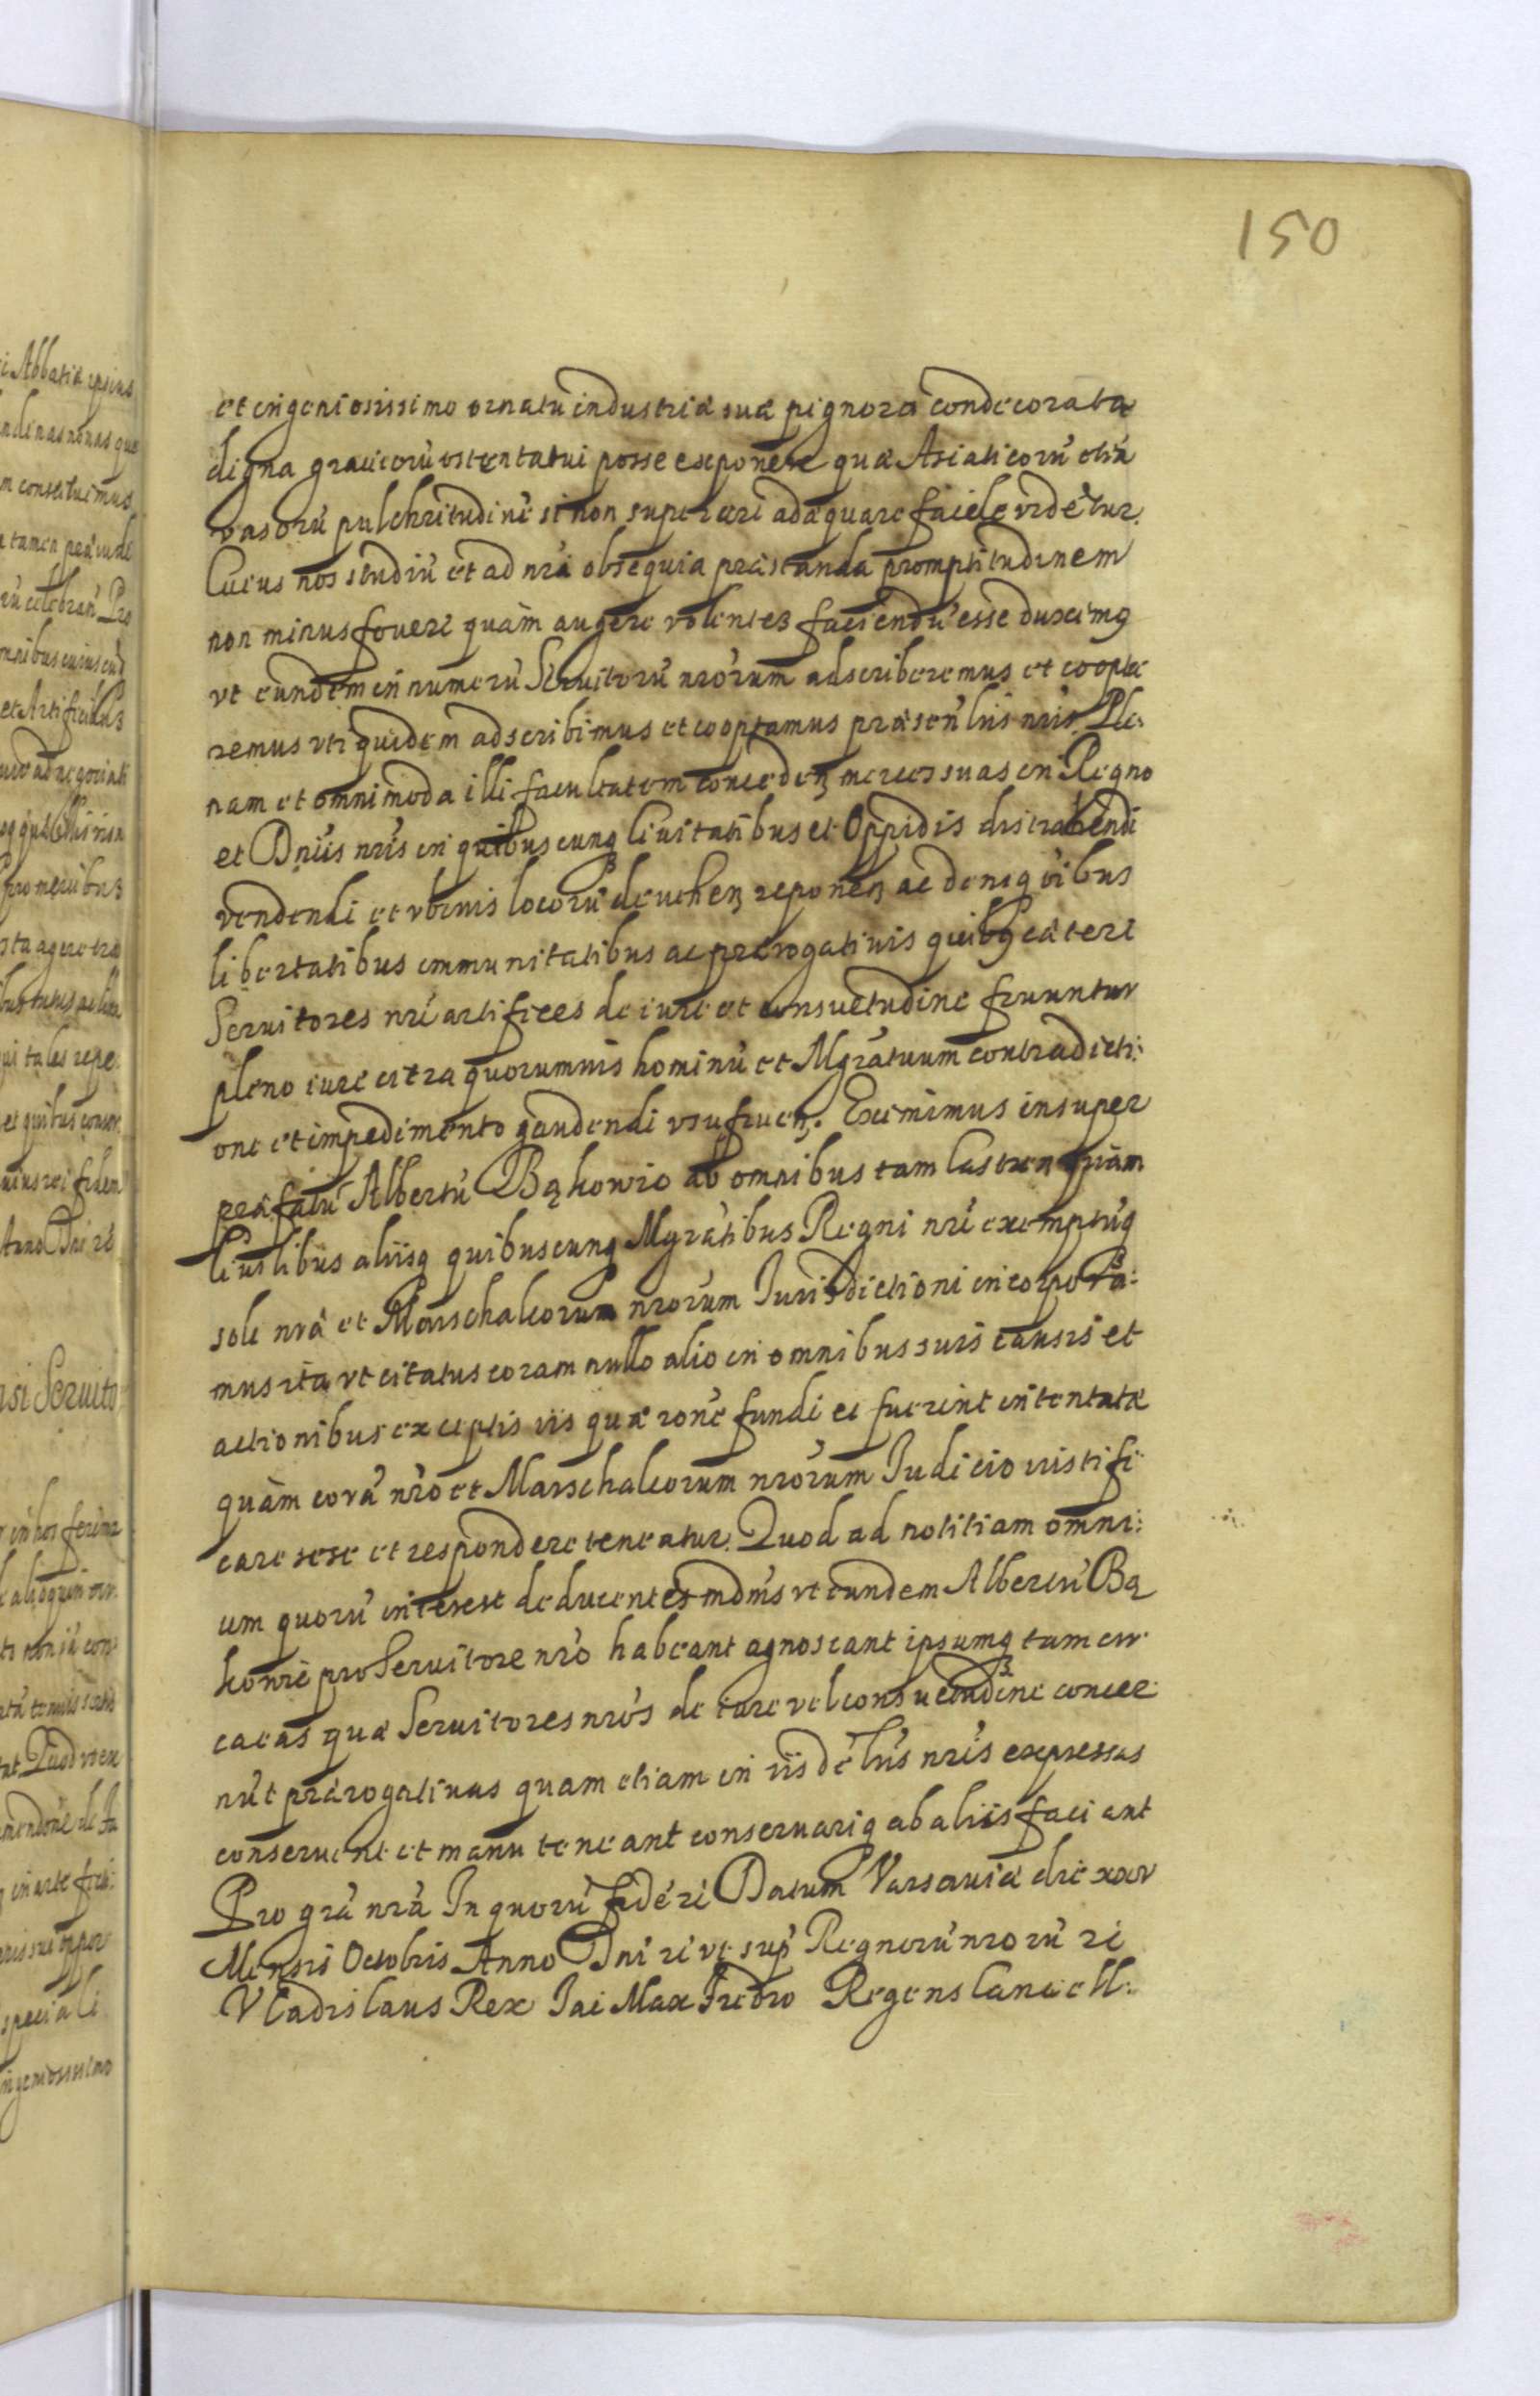 150
et ingeniosissimo ornatu industriæ suæ pignora condecorata
digna graucorũ ostentatui posse exponere quæ Asiaticorũ etiã
vasorũ pulchritudinẽ si non superare adæquare facile videtur.
Cuius nos studiũ et ad nrã obsequia præstanda promptitudinem
non minus fouere quàm augere volentes faciendũ esse duximq
vt eundem in numerũ Seruitorũ nrorum adscriberemus et coopta
remus vti quidem adscribimus et cooptamus præsen lris nris. Ple
nam et omnimoda illi facultatem conceden merces suas in Regno
et Dniis nris in quibuscunq Ciuitatibus et Oppidis distrahendi
vendendi et vbiuis locorũ deuehen reponen ac deniq oibus
libertatibus immunitatibus ac prærogatiuis quibq cæteri
Seruitores nri artifices de iure et consuetudine fruuntur
pleno iure citra quorumuis hominũ et Mgratuum contradicti:
one et impedimento gaudendi vsufruen. Eximimus insuper
præfatũ Albertũ Bąkowic ab omnibus tam Castren quàm
Ciuilibus aliisq quibuscunq Mgratibus Regni nri exemptũq
soli nrã et Marschalcorum nrorum Iurisdictioni incorpora:
mus ita vt citatus coram nullo alio in omnibus suis causis et
actionibus exceptis iis quæ ronẽ fundi ei fuerint intentatæ
quàm corã nro et Marschalcorum nrorum Iudicio iustifi
care sese et respondere teneatur. Quod ad notitiam omni:
um quorũ interest deducentes mdms vt eundem Albertũ Bą
kowic pro Seruitore nro habeant agnoscant ipsumq tum cir
ca eas quæ Seruitores nros de iure vel consuetudine concer
nũt prærogatiuas quam etiam in iisdẽ lris nris expressas
conseruent et manu teneant conseruariq ab aliis faciant
Pro grã nrã In quorũ fidẽ rẽ Datum Varsauiæ die xxv
Mensis Octobris Anno Dni rẽ vt sup Regnorũ nrorũ rẽ
Vladislaus Rex Iac Max Fredro Regens Cancell: